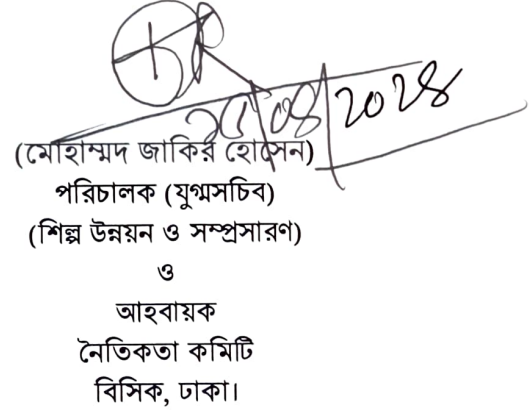 (মোহাম্মদ জাকির হোসেন)
পরিচালক (যুগ্মসচিব)
(শিল্প উন্নয়ন ও সম্প্রসারণ)
ও
আহবায়ক
নৈতিকতা কমিটি
বিসিক, ঢাকা।